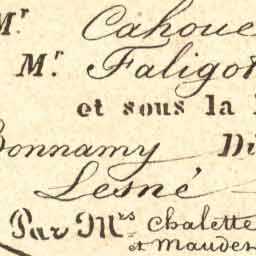 Mr Cahoue
Mr Faligo
et sous la
Bonnamy Di
Lesné
Par Mrs Chalette
et Mauder